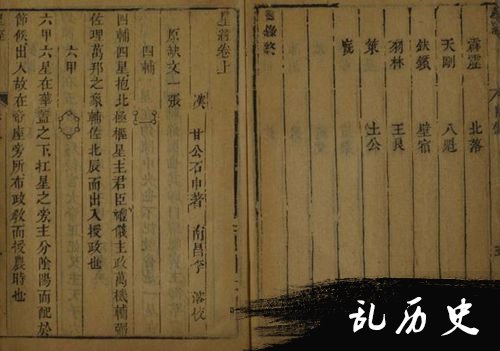 霹靂 北落
天剛 八魁
鈇鑕 壁宿
羽林 王良
策 土公
錄終
星經卷上
漢 甘公石申著 南昌李 校
原缺文一張
四輔
四輔四星抱北極樞星主君臣禮儀主政萬機輔弼
佐理萬邦之象輔佐北辰而出入授政也
六甲
六甲六星在華蓋之下扛星之旁主分陰陽而配於
節候出入故在帝座旁所布政教而授農時也
乱历史